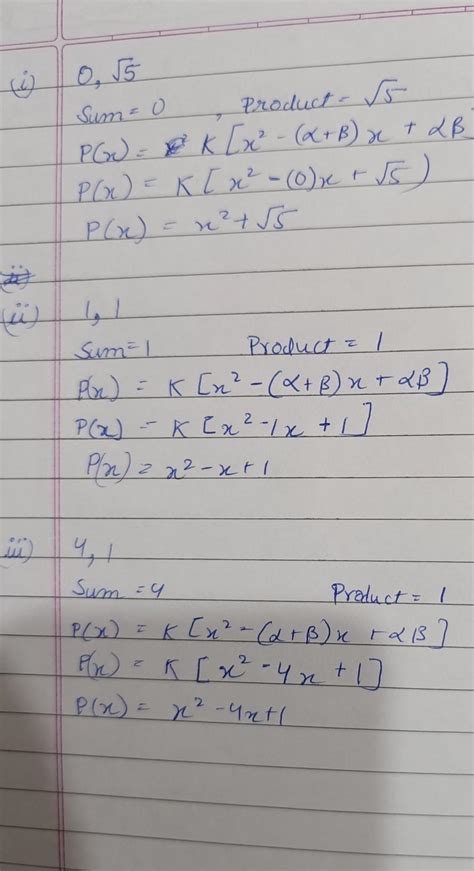 (i) 0, √5
Sum = 0 , Product = √5
P(x) = K [x² - (α+β)x + αβ
P(x) = K [ x² - (0)x + √5 )
P(x) = x² + √5
(ii) 1, 1
Sum = 1 Product = 1
P(x) = K [x² - (α+β)x + αβ]
P(x) = K [x² - 1x + 1]
P(x) = x² - x + 1
iii) 4, 1
Sum = 4 Product = 1
P(x) = K [x² - (α+β)x + αβ]
P(x) = K [x² - 4x + 1]
P(x) = x² - 4x + 1